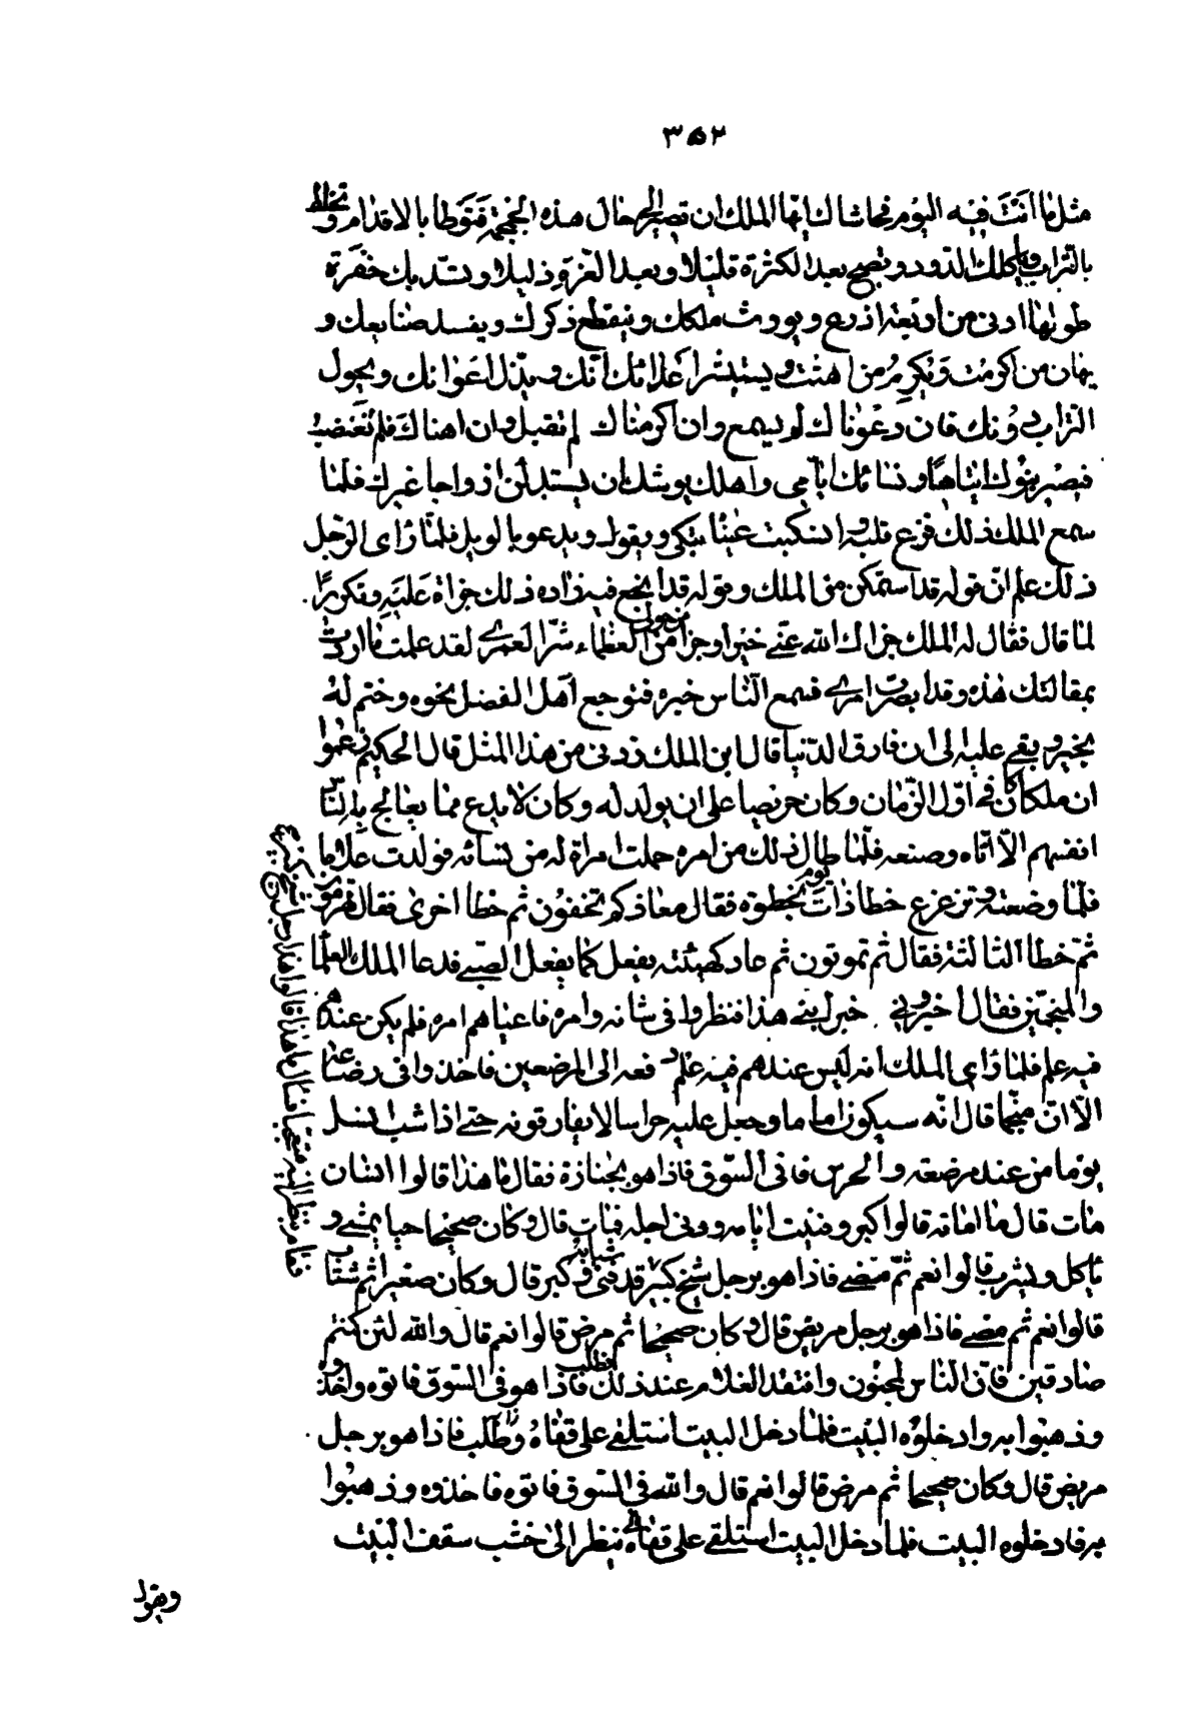 ٣٥٢
مثل ما انت فيه اليوم فحاشاك ايها الملك ان تصير الى حال هذه الجمجمة فتوطا بالاقدام و تخالط
بالتراب وياكلك الدود وتصبح بعد الكثرة قليلا وبعد العزة ذليلا وتسد بك حفرة
طولها ادنى من اربعة اذرع ويورث ملكك وينقطع ذكرك ويفسد صنايعك و
يهان من اكرمت ويكرم من اهنت ويستبشر اعدائك ويذل اعوانك ويحول
التراب دونك فان دعوناك لم يسمع وان اكرمناك لم تقبل وان اهناك فلم تغضب
فيصير بنوك ايتاما ونسائك ايامى واهلك يوشك ان يستبدلن ازواجا غيرك فلما
سمع الملك ذلك فزع قلبه وانسكبت عيناه يبكى ويقول ويدعو بالويل فلما راى الرجل
ذلك علم ان قوله قد استمكن من الملك وقوله قد انجع فيه زاده ذلك جراة عليه وتكريرا
لما قال فقال له الملك جزاك الله عنى خيرا وجزا من حولى من العظماء شرا لعمرى لقد علمت ما اردت
بمقالتك هذه وقد ابصرت امرى فسمع الناس خبره فتوجع اهل الفضل نحوه وختم له
بخير وبقى عليه الى ان فارق الدنيا قال ابن الملك زدنى من هذا المثل قال الحكيم زعموا
ان ملكا كان فى اول الزمان وكان حريصا على ان يولد له وكان لا يدع مما يعالج به الناس
انفسهم الا اتاه وصنعه فلما طال ذلك من امره حملت امراة له من نسائه فولدت غلاما
فلما وضعته وترعرع خطا ذات يوم خطوة فقال معاذكم تخفون ثم خطا اخرى فقال تهرمون
ثم خطا الثالثة فقال ثم تموتون ثم عاد كهيئته يفعل كما يفعل الصبى فدعا الملك العلما
والمنجمين فقال اخبرونى خبر ابنى هذا فنظروا فى شانه وامره فاعياهم امره فلم يكن عندهم
فيه علم فلما راى الملك انه ليس عندهم فيه علم دفعه الى المرضعين فاخذوا فى رضاعه
الا ان منجما قال انه سيكون اماما وجعل عليه حراسا لا يفارقونه حتى اذا شب انسل
يوما من عند مرضعه والحرس فاتى السوق فاذا هو بجنازة فقال ما هذا قالوا انسان
مات قال ما اماته قالوا كبر وفنيت ايامه ودنى اجله فمات قال وكان صحيحا حيا يمشى و
ياكل ويشرب قالوا نعم ثم مضى فاذا هو برجل شيخ كبير
فقام ينظر اليه متعجبا فقال ما هذا قالوا هذا رجل شيخ كبير
قد فنى شبابه وكبر قال وكان صغيرا ثم شاب
قالوا نعم ثم مضى فاذا هو برجل مريض قال وكان صحيحا ثم مرض قالوا نعم قال والله لئن كنتم
صادقين فان الناس لمجنون وافتقد الغلام عند ذلك فطلب فاذا هو فى السوق فاتوه واخذوه
وذهبوا به وادخلوه البيت فلما دخل البيت استلقى على قفاه وطلب فاذا هو برجل
مريض قال وكان صحيحا ثم مرض قالوا نعم قال والله فى السوق فاتوه فاخذوه وذهبوا
به فادخلوه البيت فلما دخل البيت استلقى على قفاه ينظر الى خشب سقف البيت
ويقول